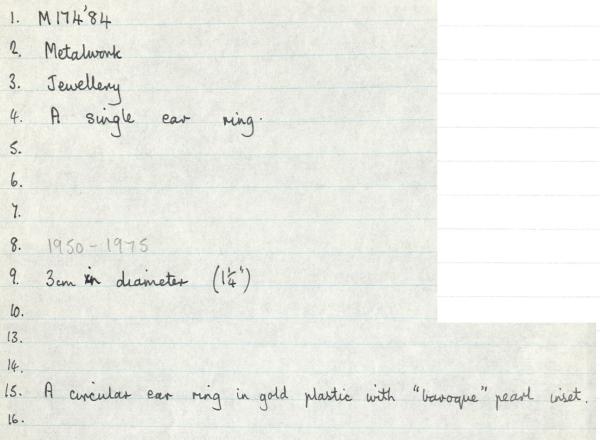 1. M174'84
2. Metalwork
3. Jewellery
4. A single ear ring.
5.
6.
7.
8. 1950-1975
9. 3cm in diameter (1¼")
10.
13.
14.
15. A circular ear ring in gold plastic with "baroque" pearl inset.
16.